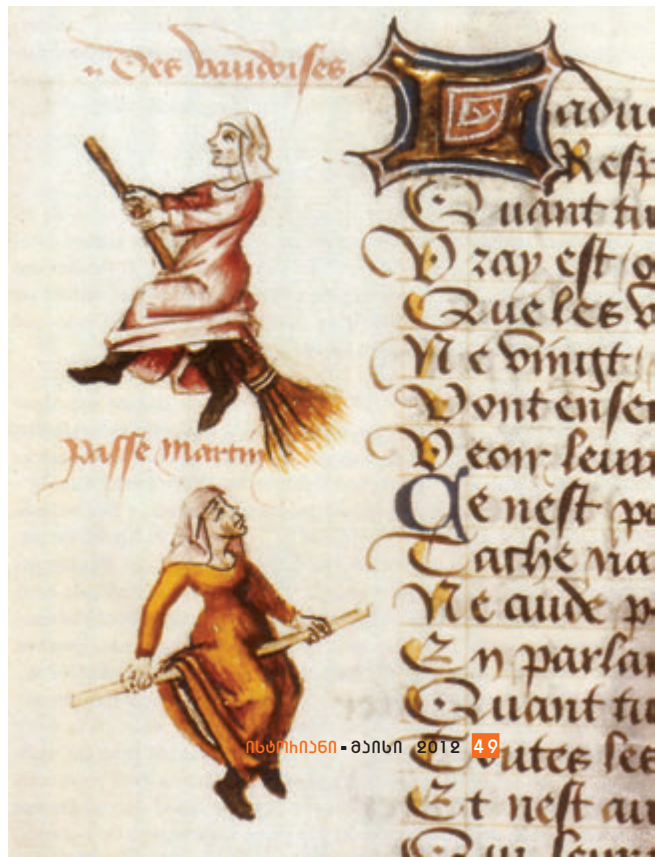 Des vaudoises
passe Martin
Resp
Quant tu
Vray est
Que les v
Ne vingt
Vont ense
Veoir leur
Ce nest po
Tache na
Ne cuide p
En parlan
Quant tu
Toutes les
Et nest au
ისტორიანი - მაისი 2012 49